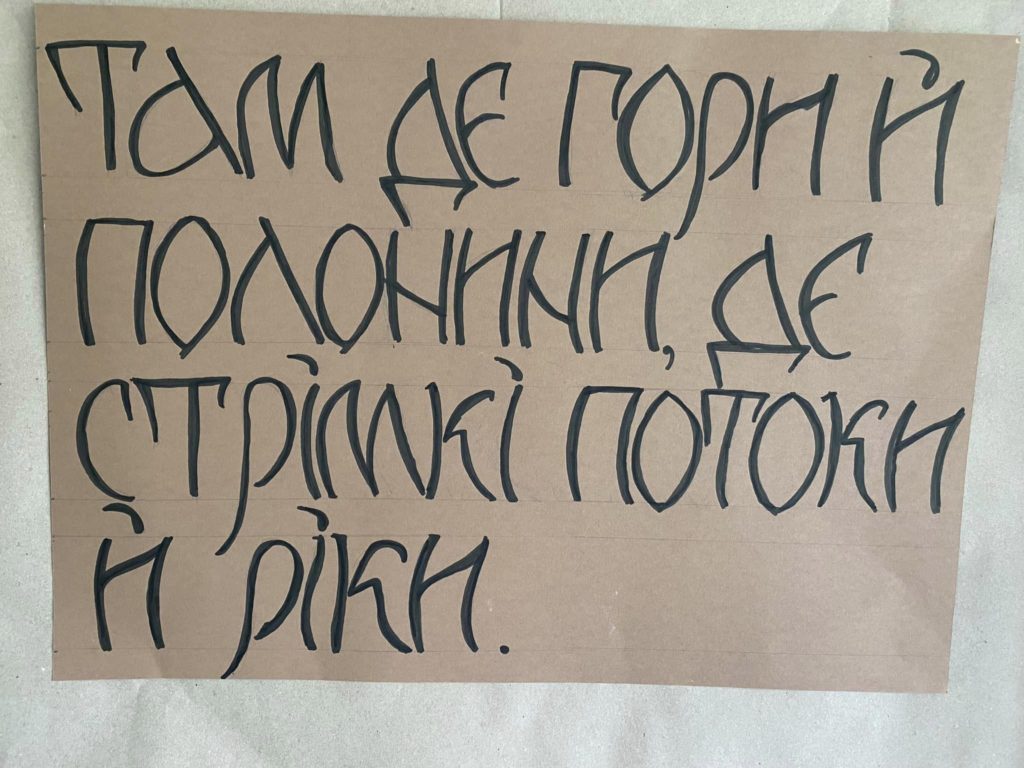 ТАМ ДЕ ГОРИ Й
ПОЛОНИНИ, ДЕ
СТРІМКІ ПОТОКИ
Й РІКИ.